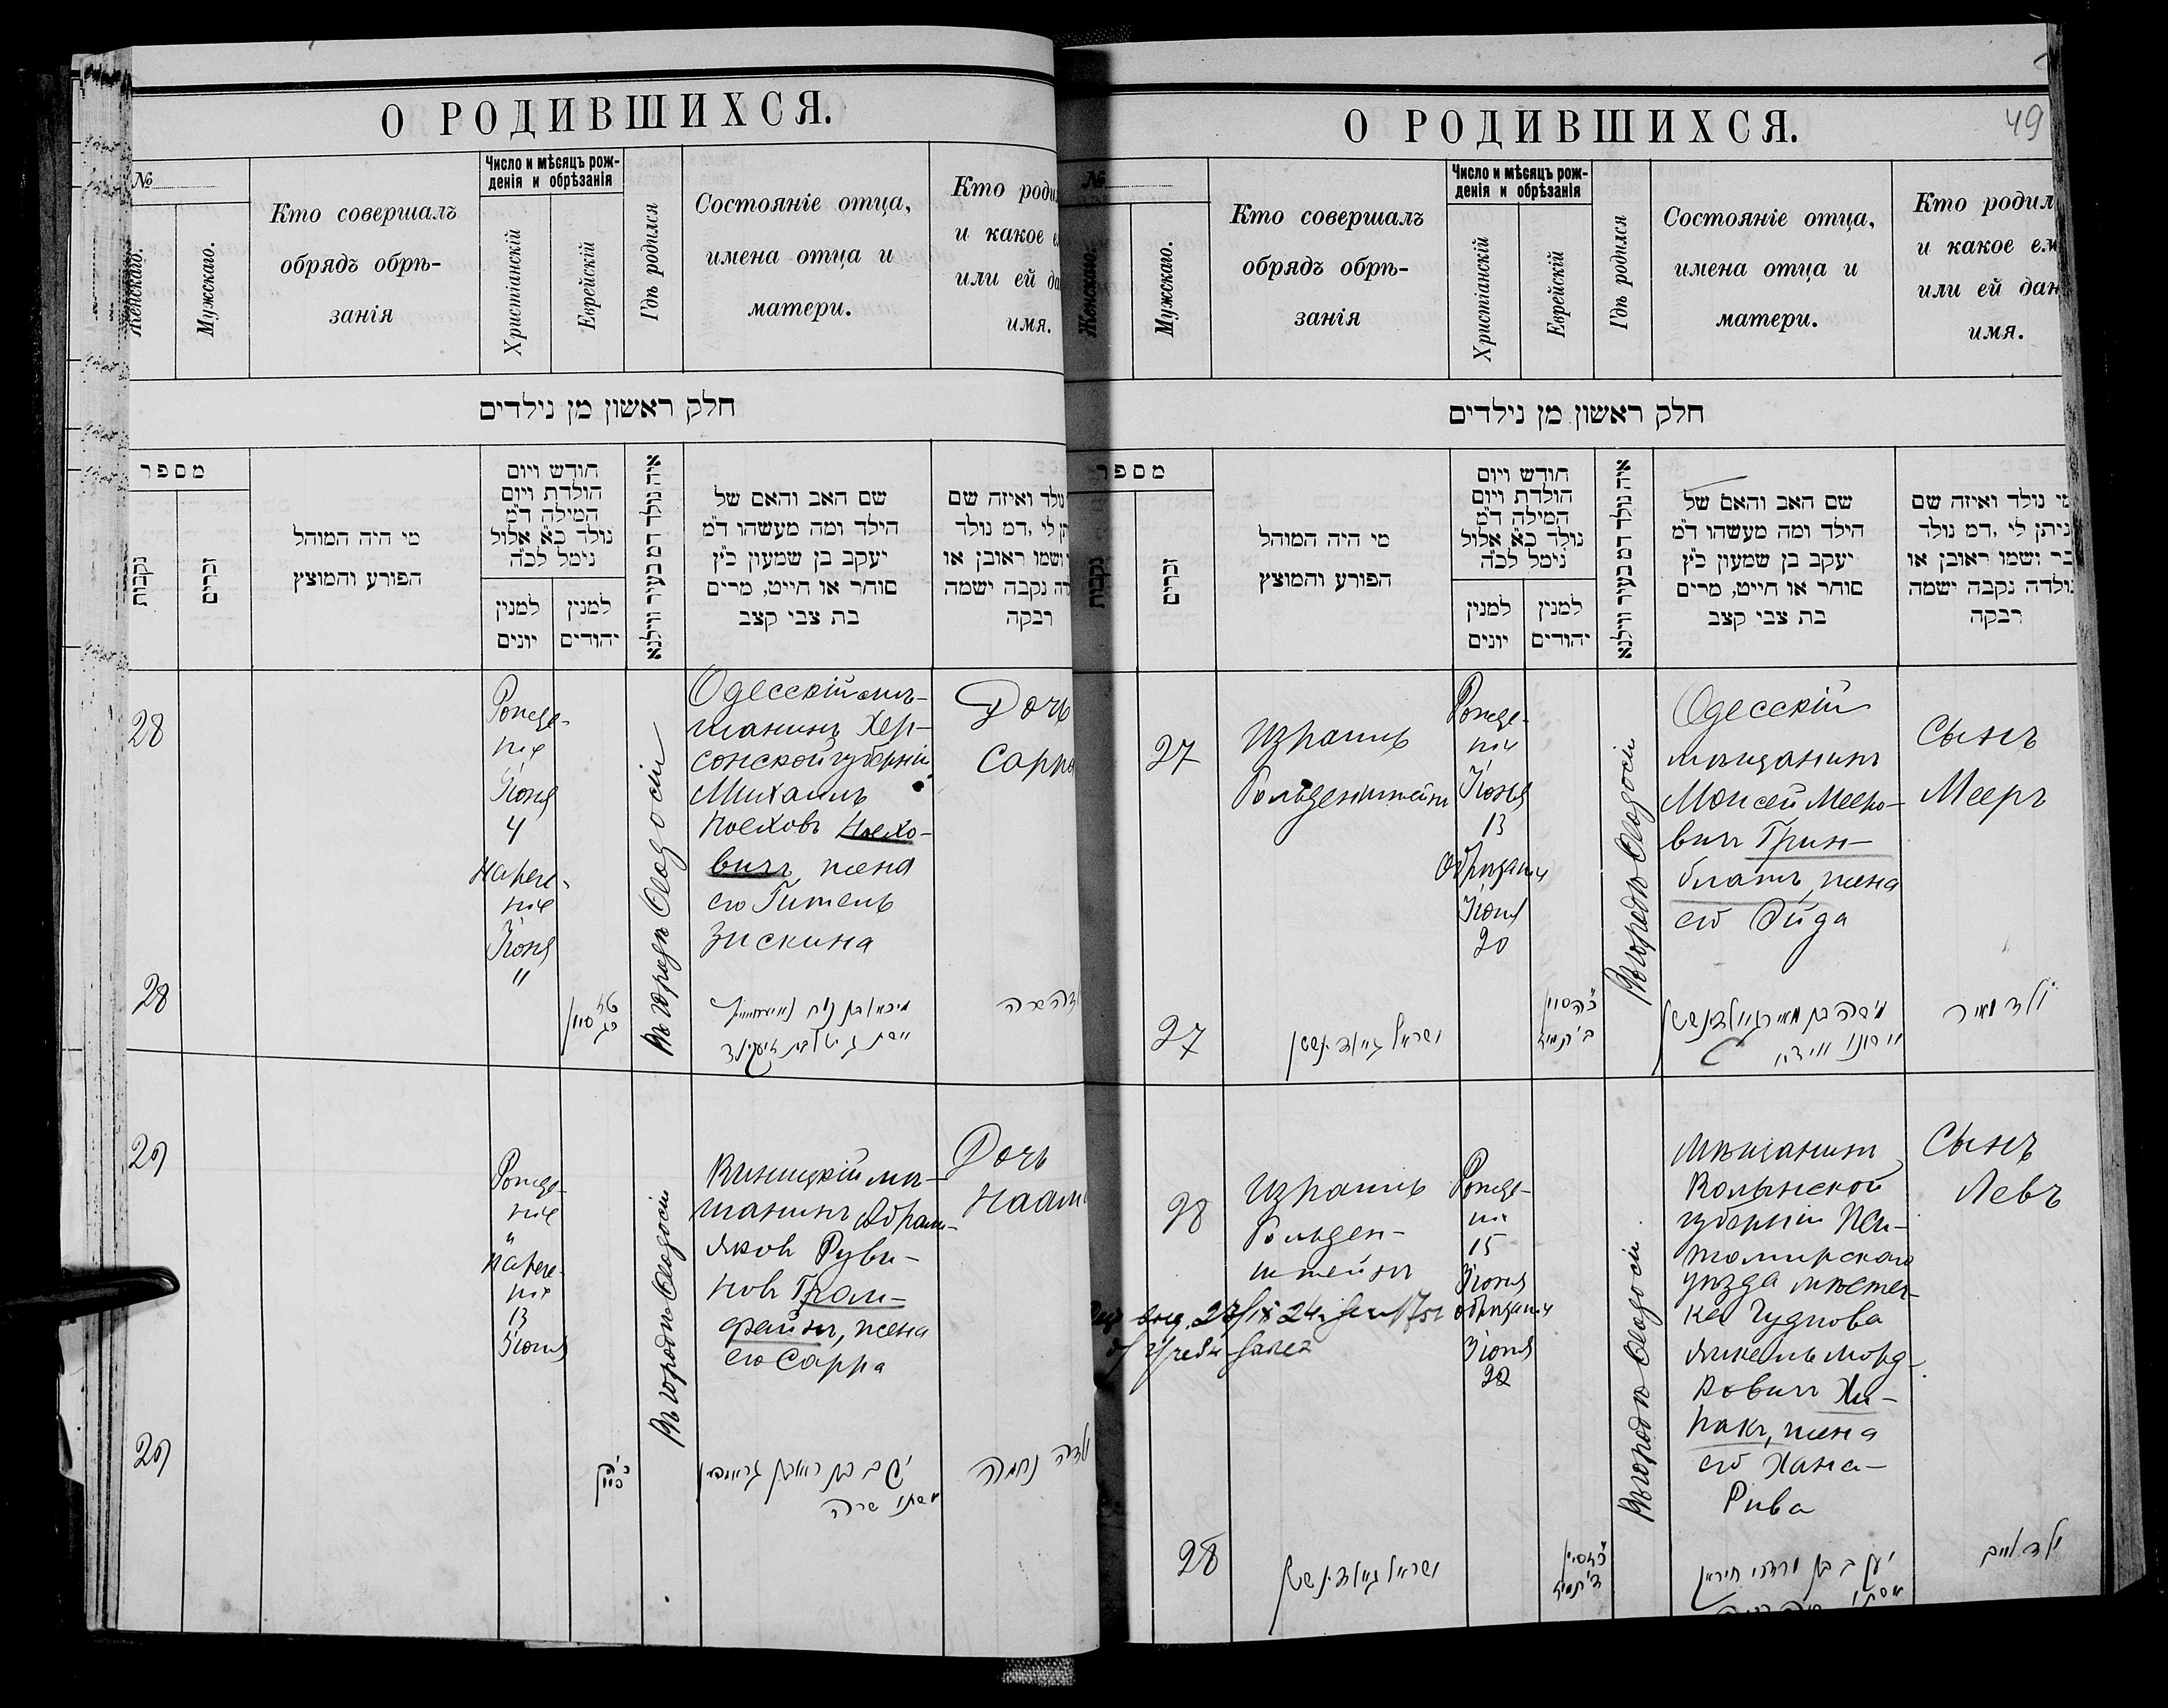 О РОДИВШИХСЯ.
№
Женскаго.
Мужскаго.
Кто совершалъ
обрядъ обрѣ-
занія
Число и мѣсяцъ рож-
денія и обрѣзанія
Христіанскій
Еврейскій
Гдѣ родился
Состояніе отца,
имена отца и
матери.
Кто роди
и какое е
или ей да
имя.
חלק ראשון מן נילדים
מספר
נקבות
זכרים
מי היה המוהל
הפורע והמוצץ
חודש ויום
הולדת ויום
המילה ד״מ
נולד כ״א אלול
נימל לכ״ה
למנין
יונים
למנין
יהודים
איה נולד דמ בעיר ווילנא
שם האב והאם של
הילד ומה מעשהו ד״מ
יעקב בן שמעון כ״ץ
סוחר או חייט, מרים
בת צבי קצב
נולד ואיזה שם
תן לי, דמ נולד
ושמו ראובן או
דה נקבה ישמה
רבקה
28
Рожде-
ніе
Іюня
4
Нарече-
ніе
Іюня
"
Въ городѣ Ѳеодосіи
Одесскій мѣ-
щанинъ Хер-
сонской губерніи
Михаилъ
Ноеховъ Ноехо-
вичъ, жена
его Гитель
Зискина
Дочь
Сарра
28
29
Рожде-
ніе
"
Нарече-
ніе
13
Іюня
Въ городѣ Ѳеодосіи
Виницкій мѣ-
щанинъ Абрам-
Яковъ Руви-
новъ Грай-
файнъ, жена
его Сарра
Дочь
Наам
29
יעקב בן ראובן
אשתו שרה
ילדה נחמה
О РОДИВШИХСЯ.
49
№
Женскаго.
Мужскаго.
Кто совершалъ
обрядъ обрѣ-
занія
Число и мѣсяцъ рож-
денія и обрѣзанія
Христіанскій
Еврейскій
Гдѣ родился
Состояніе отца,
имена отца и
матери.
Кто родил
и какое ем
или ей дан
имя.
חלק ראשון מן נילדים
מספר
נקבות
זכרים
מי היה המוהל
הפורע והמוצץ
חודש ויום
הולדת ויום
המילה ד״מ
נולד כ״א אלול
נימל לכ״ה
למנין
יונים
למנין
יהודים
איה נולד דמ בעיר ווילנא
שם האב והאם של
הילד ומה מעשהו ד״מ
יעקב בן שמעון כ״ץ
סוחר או חייט, מרים
בת צבי קצב
מי נולד ואיזה שם
ניתן לי, דמ נולד
בר ושמו ראובן או
נולדה נקבה ישמה
רבקה
27
Израиль
Гольденштейнъ
Рожде-
ніе
Іюня
13
Обрѣзаніе
Іюня
20
Въ городѣ Ѳеодосіи
Одесскій
мѣщанинъ
Моисей Мееро-
вичъ Грин-
блатъ, жена
его Эйда
Сынъ
Мееръ
27
ישראל גאלדענשטיין
ילד מאיר
28
Израиль
Гольден-
штейнъ
Рожде-
ніе
15
Іюня
обрѣзаніе
Іюня
22
Въ городѣ Ѳеодосіи
Мѣщанинъ
Волынской
губерніи Жи-
томирскаго
уѣзда мѣстеч-
ка Чуднова
Янкель Морд-
ковичъ Хи-
накъ, жена
его Хана-
Рива
Сынъ
Левъ
28
ישראל גאלדענשטיין
ילד לייב